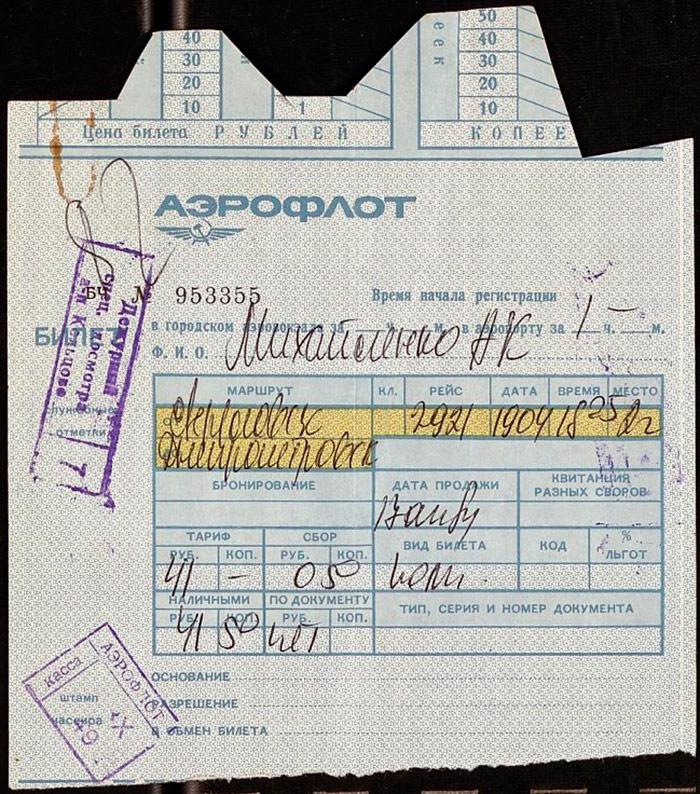 40 50
30 40
20 30
10 1 20
10
Цена билета РУБЛЕЙ КОПЕЕ
АЭРОФЛОТ
БЧ № 953355 Время начала регистрации
БИЛЕТ в городском аэровокзале за ч. м. в аэропорту за 1 ч. — м.
Ф. И. О. Михайленко АК
Дежурный
спец. досмотра
а-п Кольцово
7
служебные
отметки
МАРШРУТ КЛ. РЕЙС ДАТА ВРЕМЯ МЕСТО
Свердловск 2921 1904 18 25 2г
Днепропетровск
БРОНИРОВАНИЕ ДАТА ПРОДАЖИ КВИТАНЦИЯ
РАЗНЫХ СБОРОВ
ТАРИФ СБОР ВИД БИЛЕТА КОД % ЛЬГОТ
РУБ. КОП. РУБ. КОП.
41 – 0 50
НАЛИЧНЫМИ ПО ДОКУМЕНТУ ТИП, СЕРИЯ И НОМЕР ДОКУМЕНТА
РУБ. КОП. РУБ. КОП.
41 50 нет
ОСНОВАНИЕ
РАЗРЕШЕНИЕ
В ОБМЕН БИЛЕТА
касса АЭРОФЛОТ
штамп
кассира
49 IX